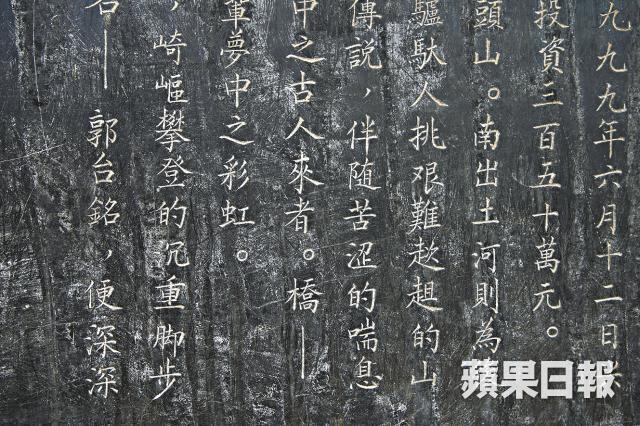 九九九年六月十二日
投資三百五十萬元。
頭山。南出土河則為
驢馱人挑艱難趑趄的山
傳説，伴随苦涩的喘息
中之古人來者。橋—
軰夢中之彩虹。
，崎嶇攀登的沉重脚步
—郭台銘，便深深
蘋果日報